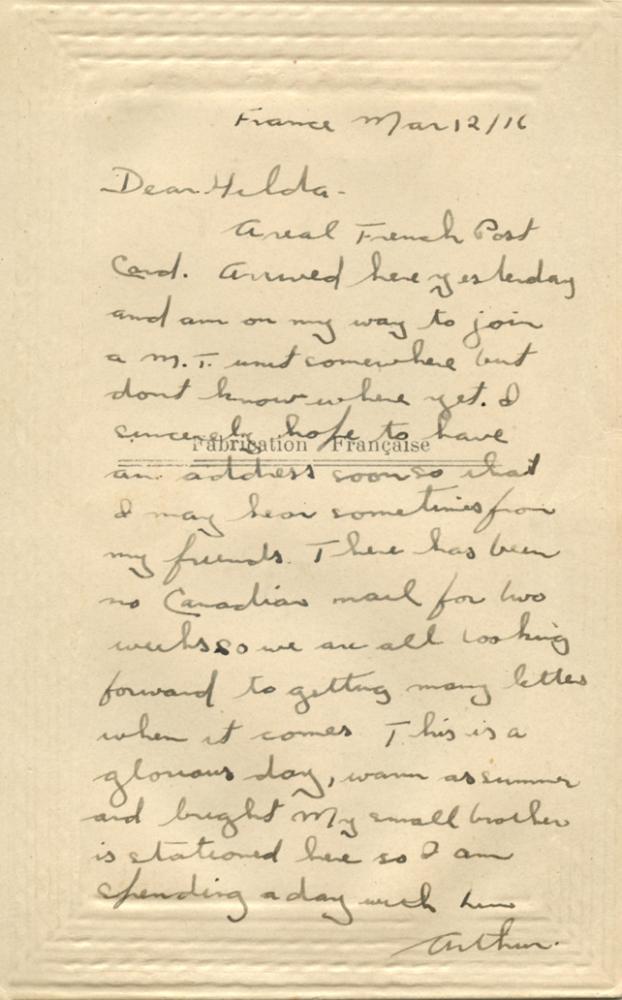 France Mar 12/16
Dear Hilda -
A real French Post
Card. Arrived here yesterday
and am on my way to join
a M.T. unit somewhere but
dont know where yet. I
sincerely hope to have
Fabrication Française
an address soon so that
I may hear sometimes from
my friends. There has been
no Canadian mail for two
weeks so we are all looking
forward to getting many letters
when it comes This is a
glorious day, warm as summer
and bright My small brother
is stationed here so I am
spending a day with him
Arthur.